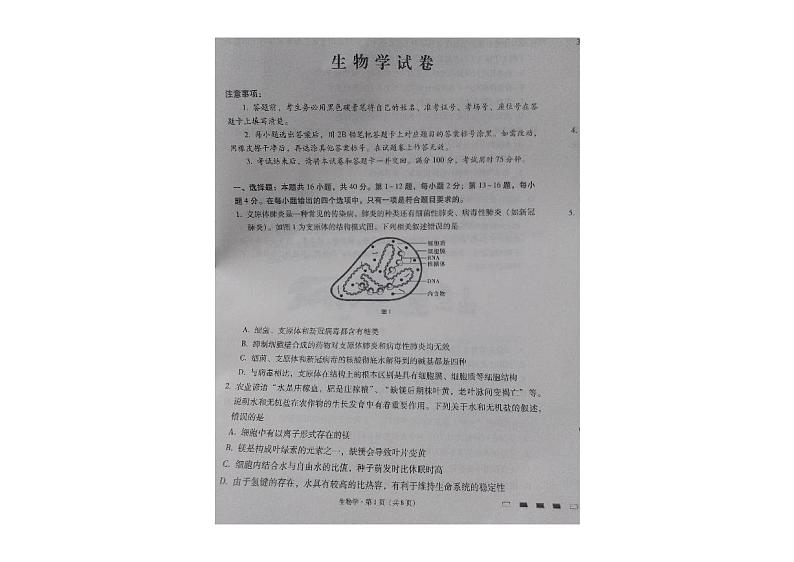 生物学试卷
注意事项：
1. 答题前，考生务必用黑色碳素笔将自己的姓名、准考证号、考场号、座位号在答
题卡上填写清楚。
2. 每小题选出答案后，用2B铅笔把答题卡上对应题目的答案标号涂黑。如需改动，
用橡皮擦干净后，再选涂其他答案标号。在试题卷上作答无效。
3. 考试结束后，请将本试卷和答题卡一并交回。满分100分，考试用时75分钟。
一、选择题：本题共16小题，共40分。第1~12题，每小题2分；第13~16题，每小
题4分。在每小题给出的四个选项中，只有一项是符合题目要求的。
1. 支原体肺炎是一种常见的传染病，肺炎的种类还有细菌性肺炎、病毒性肺炎（如新冠
肺炎）。如图1为支原体的结构模式图。下列相关叙述错误的是
细胞质
细胞膜
RNA
核糖体
DNA
内含物
图1
A. 细菌、支原体和新冠病毒都含有糖类
B. 抑制细胞壁合成的药物对支原体肺炎和病毒性肺炎均无效
C. 细菌、支原体和新冠病毒的核酸彻底水解得到的碱基都是四种
D. 与病毒相比，支原体在结构上的根本区别是具有细胞膜、细胞质等细胞结构
2. 农业谚语“水是庄稼血，肥是庄稼粮”、“缺镁后期株叶黄，老叶脉间变褐亡”等，
说明水和无机盐在农作物的生长发育中有着重要作用。下列关于水和无机盐的叙述，
错误的是
A. 细胞中有以离子形式存在的镁
B. 镁是构成叶绿素的元素之一，缺镁会导致叶片变黄
C. 细胞内结合水与自由水的比值，种子萌发时比休眠时高
D. 由于氢键的存在，水具有较高的比热容，有利于维持生命系统的稳定性
生物学·第1页（共8页）
3
4.
5.